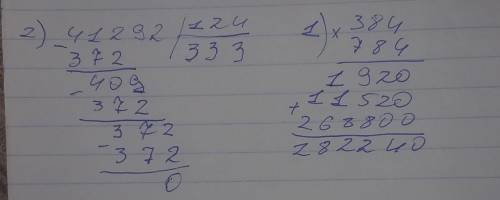 2) - 41292 | 124
372 333
- 409
372
- 372
372
0
1) × 384
784
1920
+ 11520
268800
282240